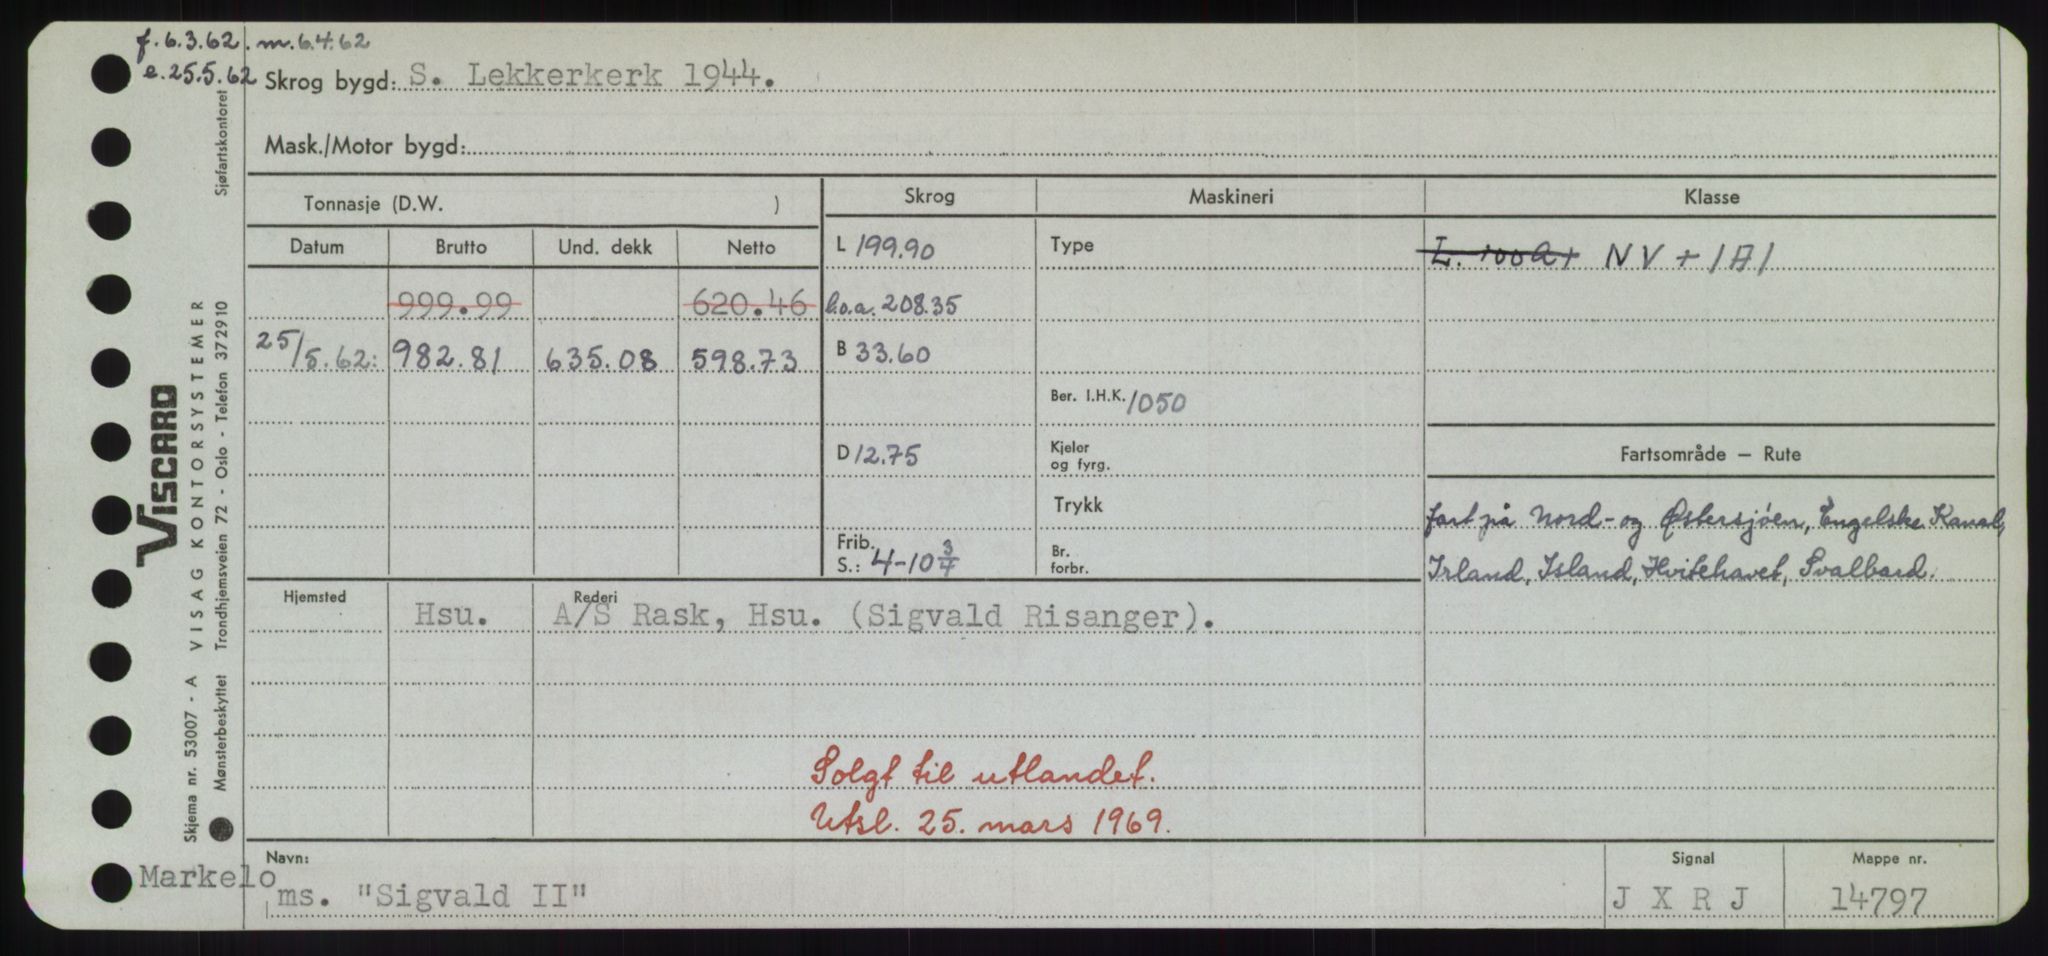 f. 6.3.62. m. 6.4.62
e. 25.5.62 Skrog bygd: S. Lekkerkerk 1944.
Mask./Motor bygd:
Tonnasje (D.W. )
Skrog Maskineri Klasse
Datum Brutto Und. dekk Netto
L 199.90 Type L. 100 A + NV + 1A1
999.99 620.46 l.o.a. 208.35
25/5.62: 982.81 635.08 598.73 B 33.60
Ber. I.H.K. 1050
D 12.75 Kjeler og fyrg. Fartsområde – Rute
Trykk fart på Nord- og Østersjøen, Engelske Kanal,
Frib. S.: 4-10 3/4 Br. forbr. Irland, Island, Hvitehavet, Svalbard.
Hjemsted Rederi
Hsu. A/S Rask, Hsu. (Sigvald Risanger).
Solgt til utlandet.
Utsl. 25. mars 1969.
Navn: Signal Mappe nr.
Markelo
ms. "Sigvald II" J X R J 14797
VISCARD
Skjema nr. 53007 - A VISAG KONTORSYSTEMER
Mønsterbeskyttet Trondhjemsveien 72 - Oslo - Telefon 372910 Sjøfartskontoret